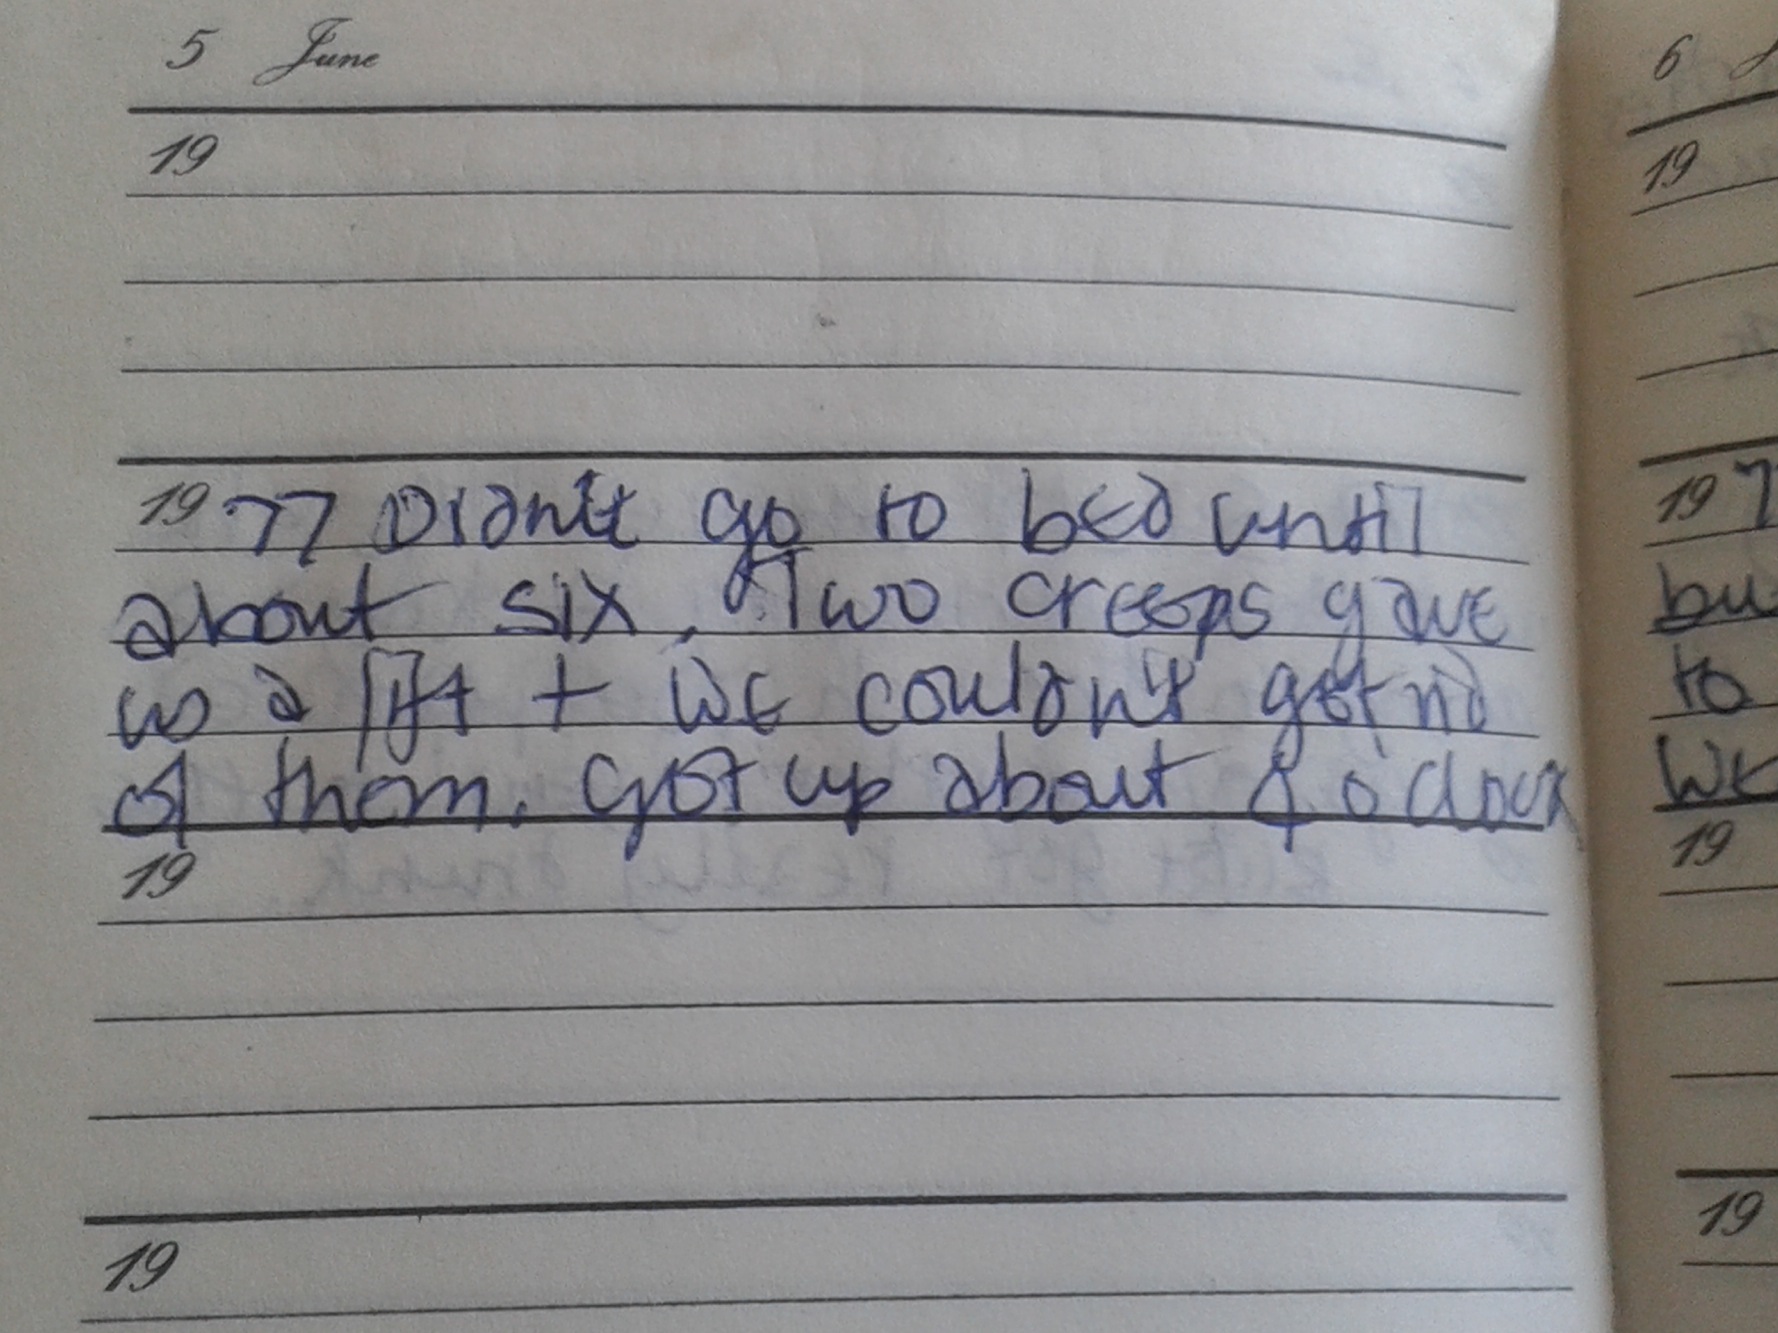 5 June
19
1977 Didn't go to bed until
about six. Two creeps gave
us a lift + we couldn't get rid
of them. Got up about 8 o'clock
19
19
6
19
197
bu
to
we
19
19